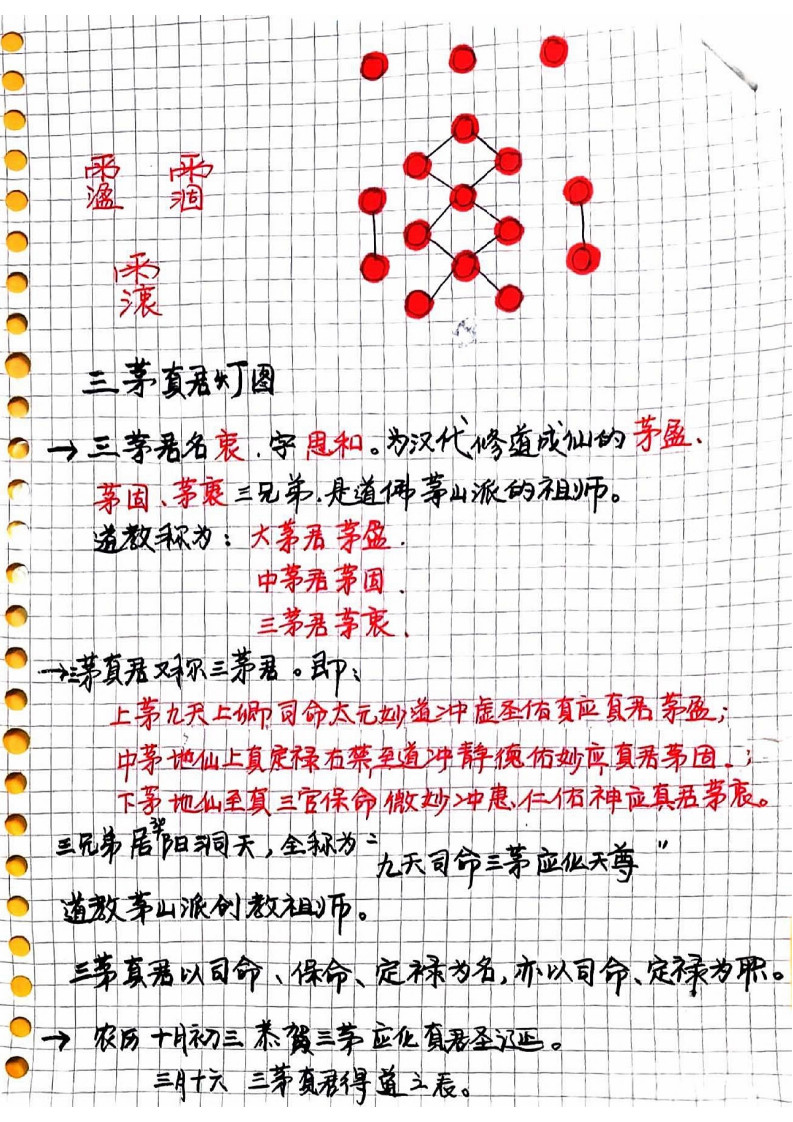 三茅真君灯图
→三茅君名衷.字思和。为汉代修道成仙的茅盈、
茅固、茅衷三兄弟.是道佛茅山派的祖师。
道教称为：大茅君茅盈.
中茅君茅固.
三茅君茅衷.
→三茅真君又称三茅君。即：
上茅九天上卿司命太元妙道冲虚圣佑真应真君茅盈；
中茅地仙上真定禄右禁至道冲静德佑妙应真君茅固.；
下茅地仙至真三官保命微妙冲惠.仁佑神应真君茅衷。
三兄弟居华阳洞天，全称为“九天司命三茅应化天尊”
道教茅山派创教祖师。
三茅真君以司命、保命、定禄为名，亦以司命、定禄为职。
→ 农历十月初三 恭贺三茅应化真君圣诞。
三月十六 三茅真君得道之辰。